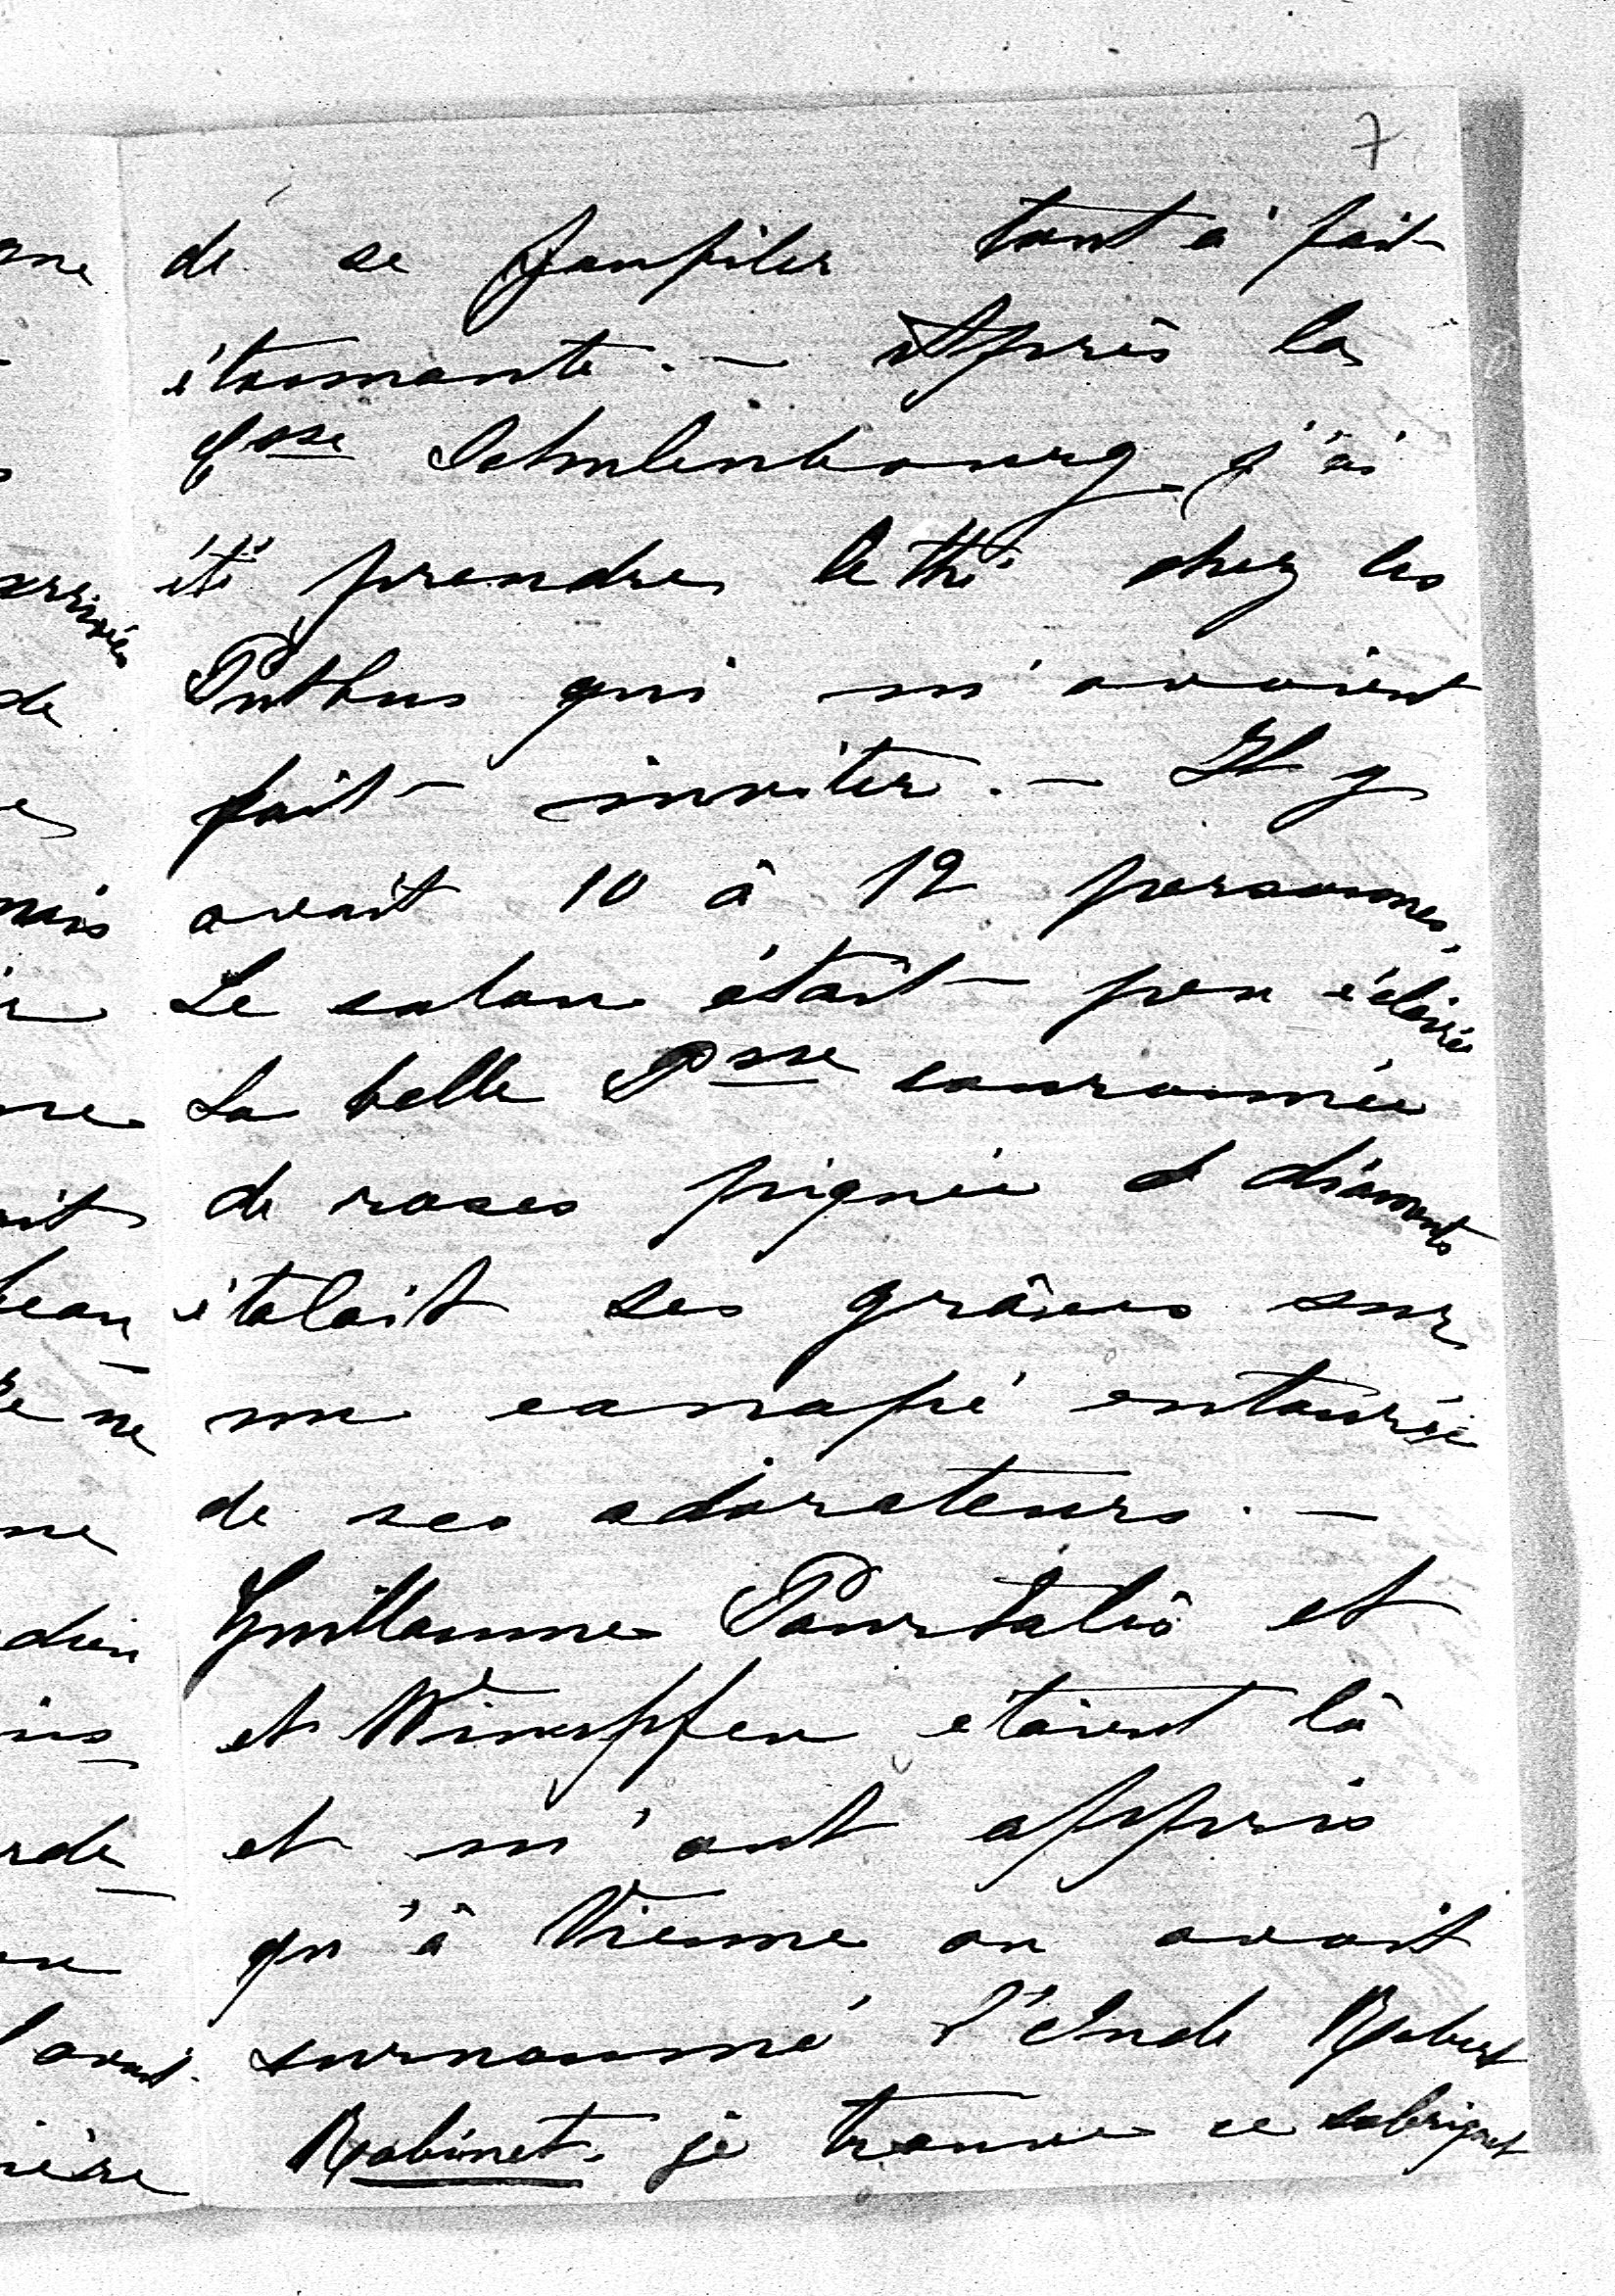 7
de se faufiler tout à fait
étonnante. – Après la
Csse Schulenbourg j'ai
été prendre le thé chez les
Putbus qui m'avaient
fait inviter. – Il y
avait 10 à 12 personnes.
Le salon était peu éclairé
La belle Psse couronnée
de roses peignée et diamants
étalait ses grâces sur
un canapé entourée
de ses adorateurs. –
Guillaume Pourtalès et
et Wimpffen étaient là
et m'ont appris
qu'à Vienne on avait
surnommé d'Ende Robert
Robinet. je trouve ce sobriquet